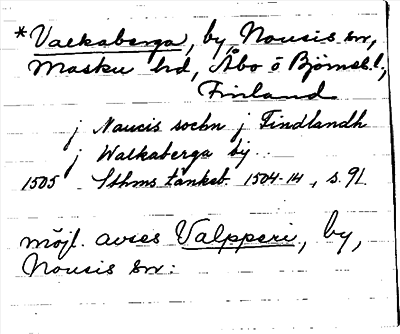 *Valkaberga, by, Nousis sn,
Masku hd, Åbo o Björneb. l.,
Finland
j Naucis sochn j Findlandh
j Walkaberga by
1505 Sthms tänkeb. 1504-14, s. 91
möjl. avses Valpperi, by,
Nousis sn.